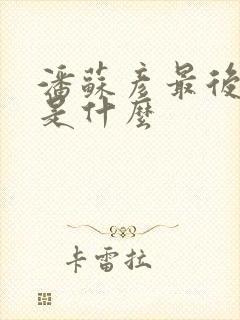 潘蘇彥最後
是什麼
卡雷拉